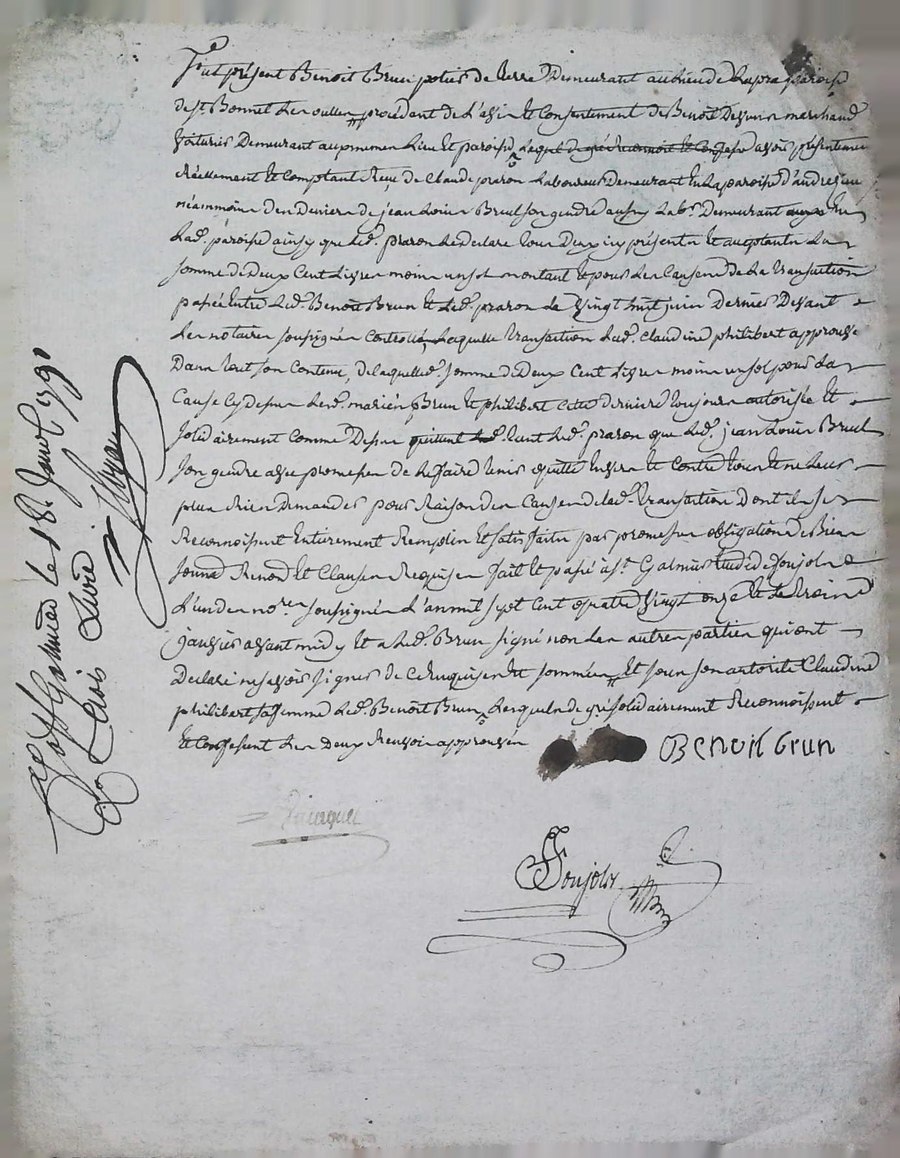 Fut présent Benoit Brun potier de terre Demeurant au lieu de Lapra paroisse
de st. Bonnet Les oulles procédant de L'avis et Consentement de Benoit marchand
voiturier Demeurant au lieu et paroisse Lequel de gré Reconnoit et Confesse avoir présentement
Réellement et Comptant Reçu de Claude prazon Laboureur Demeurant En La paroisse d'andrezieu
néammoins des Deniers de jean Louis Breul son gendre aussy Lab.r Demeurant En
Lad. paroisse ainsy que Led. prazon Le déclare tous Deux icy présents et acceptants La
somme de Deux Cent Livres moins un sol montant et pour Les Causes de La transaction
passée Entre Led. Benoit Brun et Led. prazon Le vingt huit juin Dernier Devant
Les notaires soussignés Controllé, Laquelle transaction Lad. Claudine philibert approuve
Dans tout son Contenu, de laquelle d. somme de Deux Cent Livres moins un sol pour La
Cause Cy dessus Les d. mariés Brun et philibert Cette derniere toujours autorisée et
solidairement Comme Dessus quittent tant Led. prazon que Led. jean Louis Breul
son gendre avec promesse de Les faire tenir quitte Envers et Contre tous et ne Leur
plus Rien Demander pour Raison des Causes de lad. transaction Dont ils se
Reconnoissent Entierement Remplis et satisfaits par promesses obligations de Biens
soumis. Renon. et Clauses Requises fait et passé a st. Galmier Etude de Soujols
L'un des no.res soussignés L'an mil sept Cent quatre vingt onze et le treize
janvier avant midy et a Led. Brun signé non Les autres parties qui ont
Déclaré ne savoir signer de Ce Enquises et sommées et sous son autorité Claudine
philibert sa femme Led. Benoit Brun Lesquels de gré solidairement Reconnoissent
et Confessent Les Deux Renvois approuvés
Benoit Brun
Soujols
a St Galmier le 18. Janv.
trois Livre